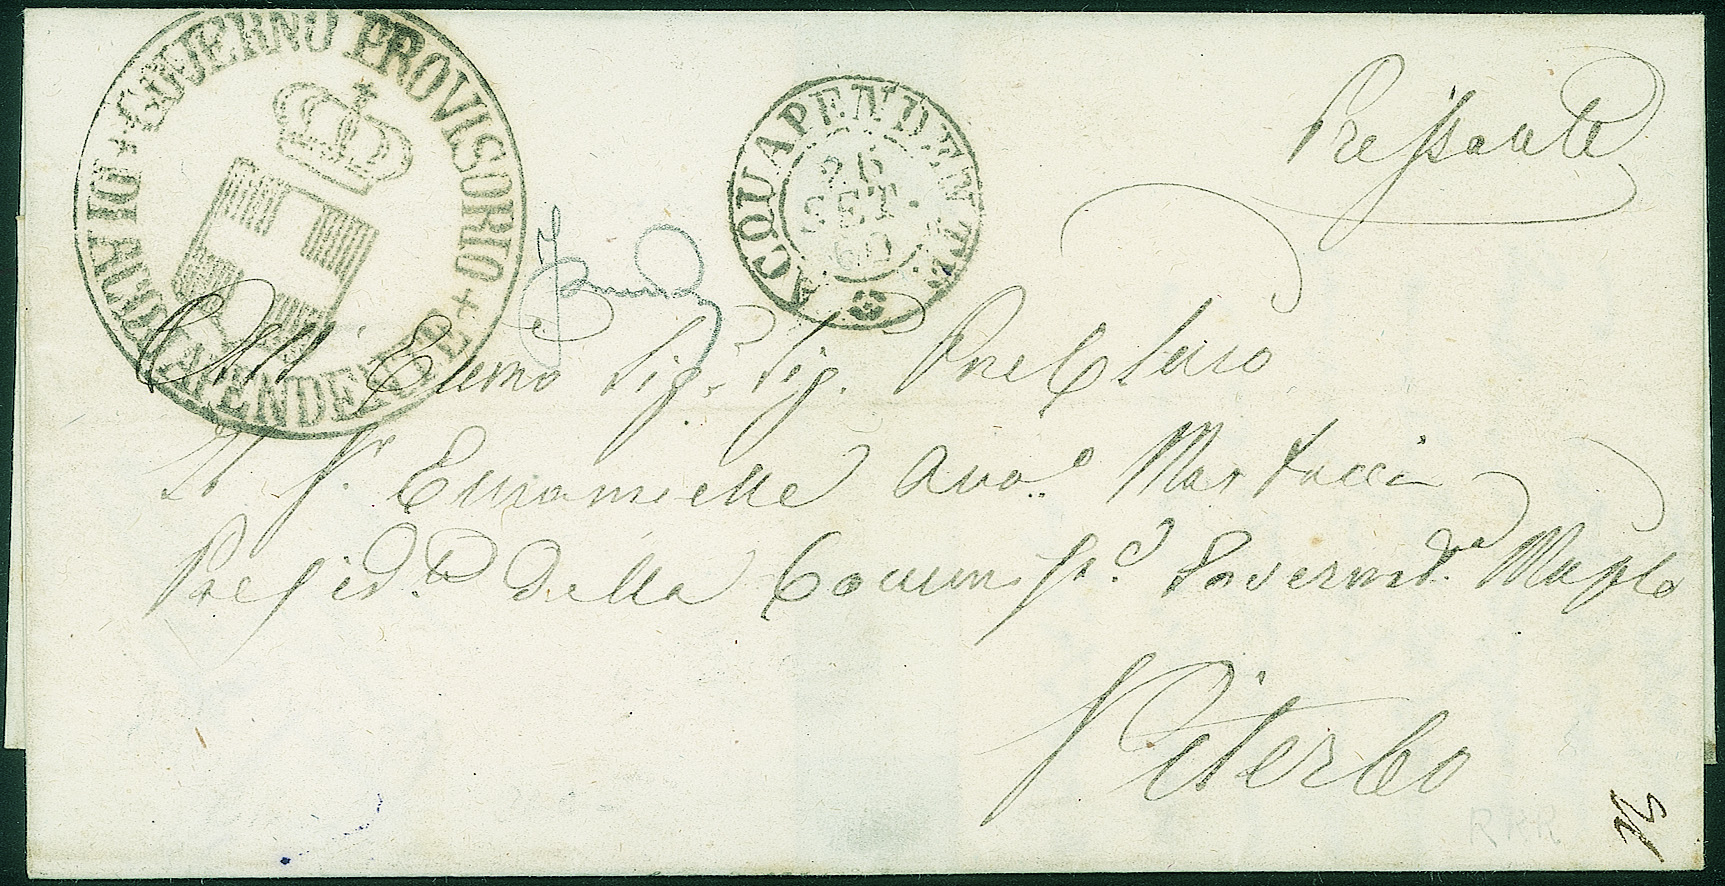 + GOVERNO PROVISORIO + ACQUAPENDENTE
ACQUAPENDENTE
26
SET.
60
Pressante
All' Ecc.mo Sig.r Sig. Pne Clmo
Il Sr. Emanuelle Avvo. Martucci
Presid.e della Commiss.e Governat.a Munple
Viterbo
RRR